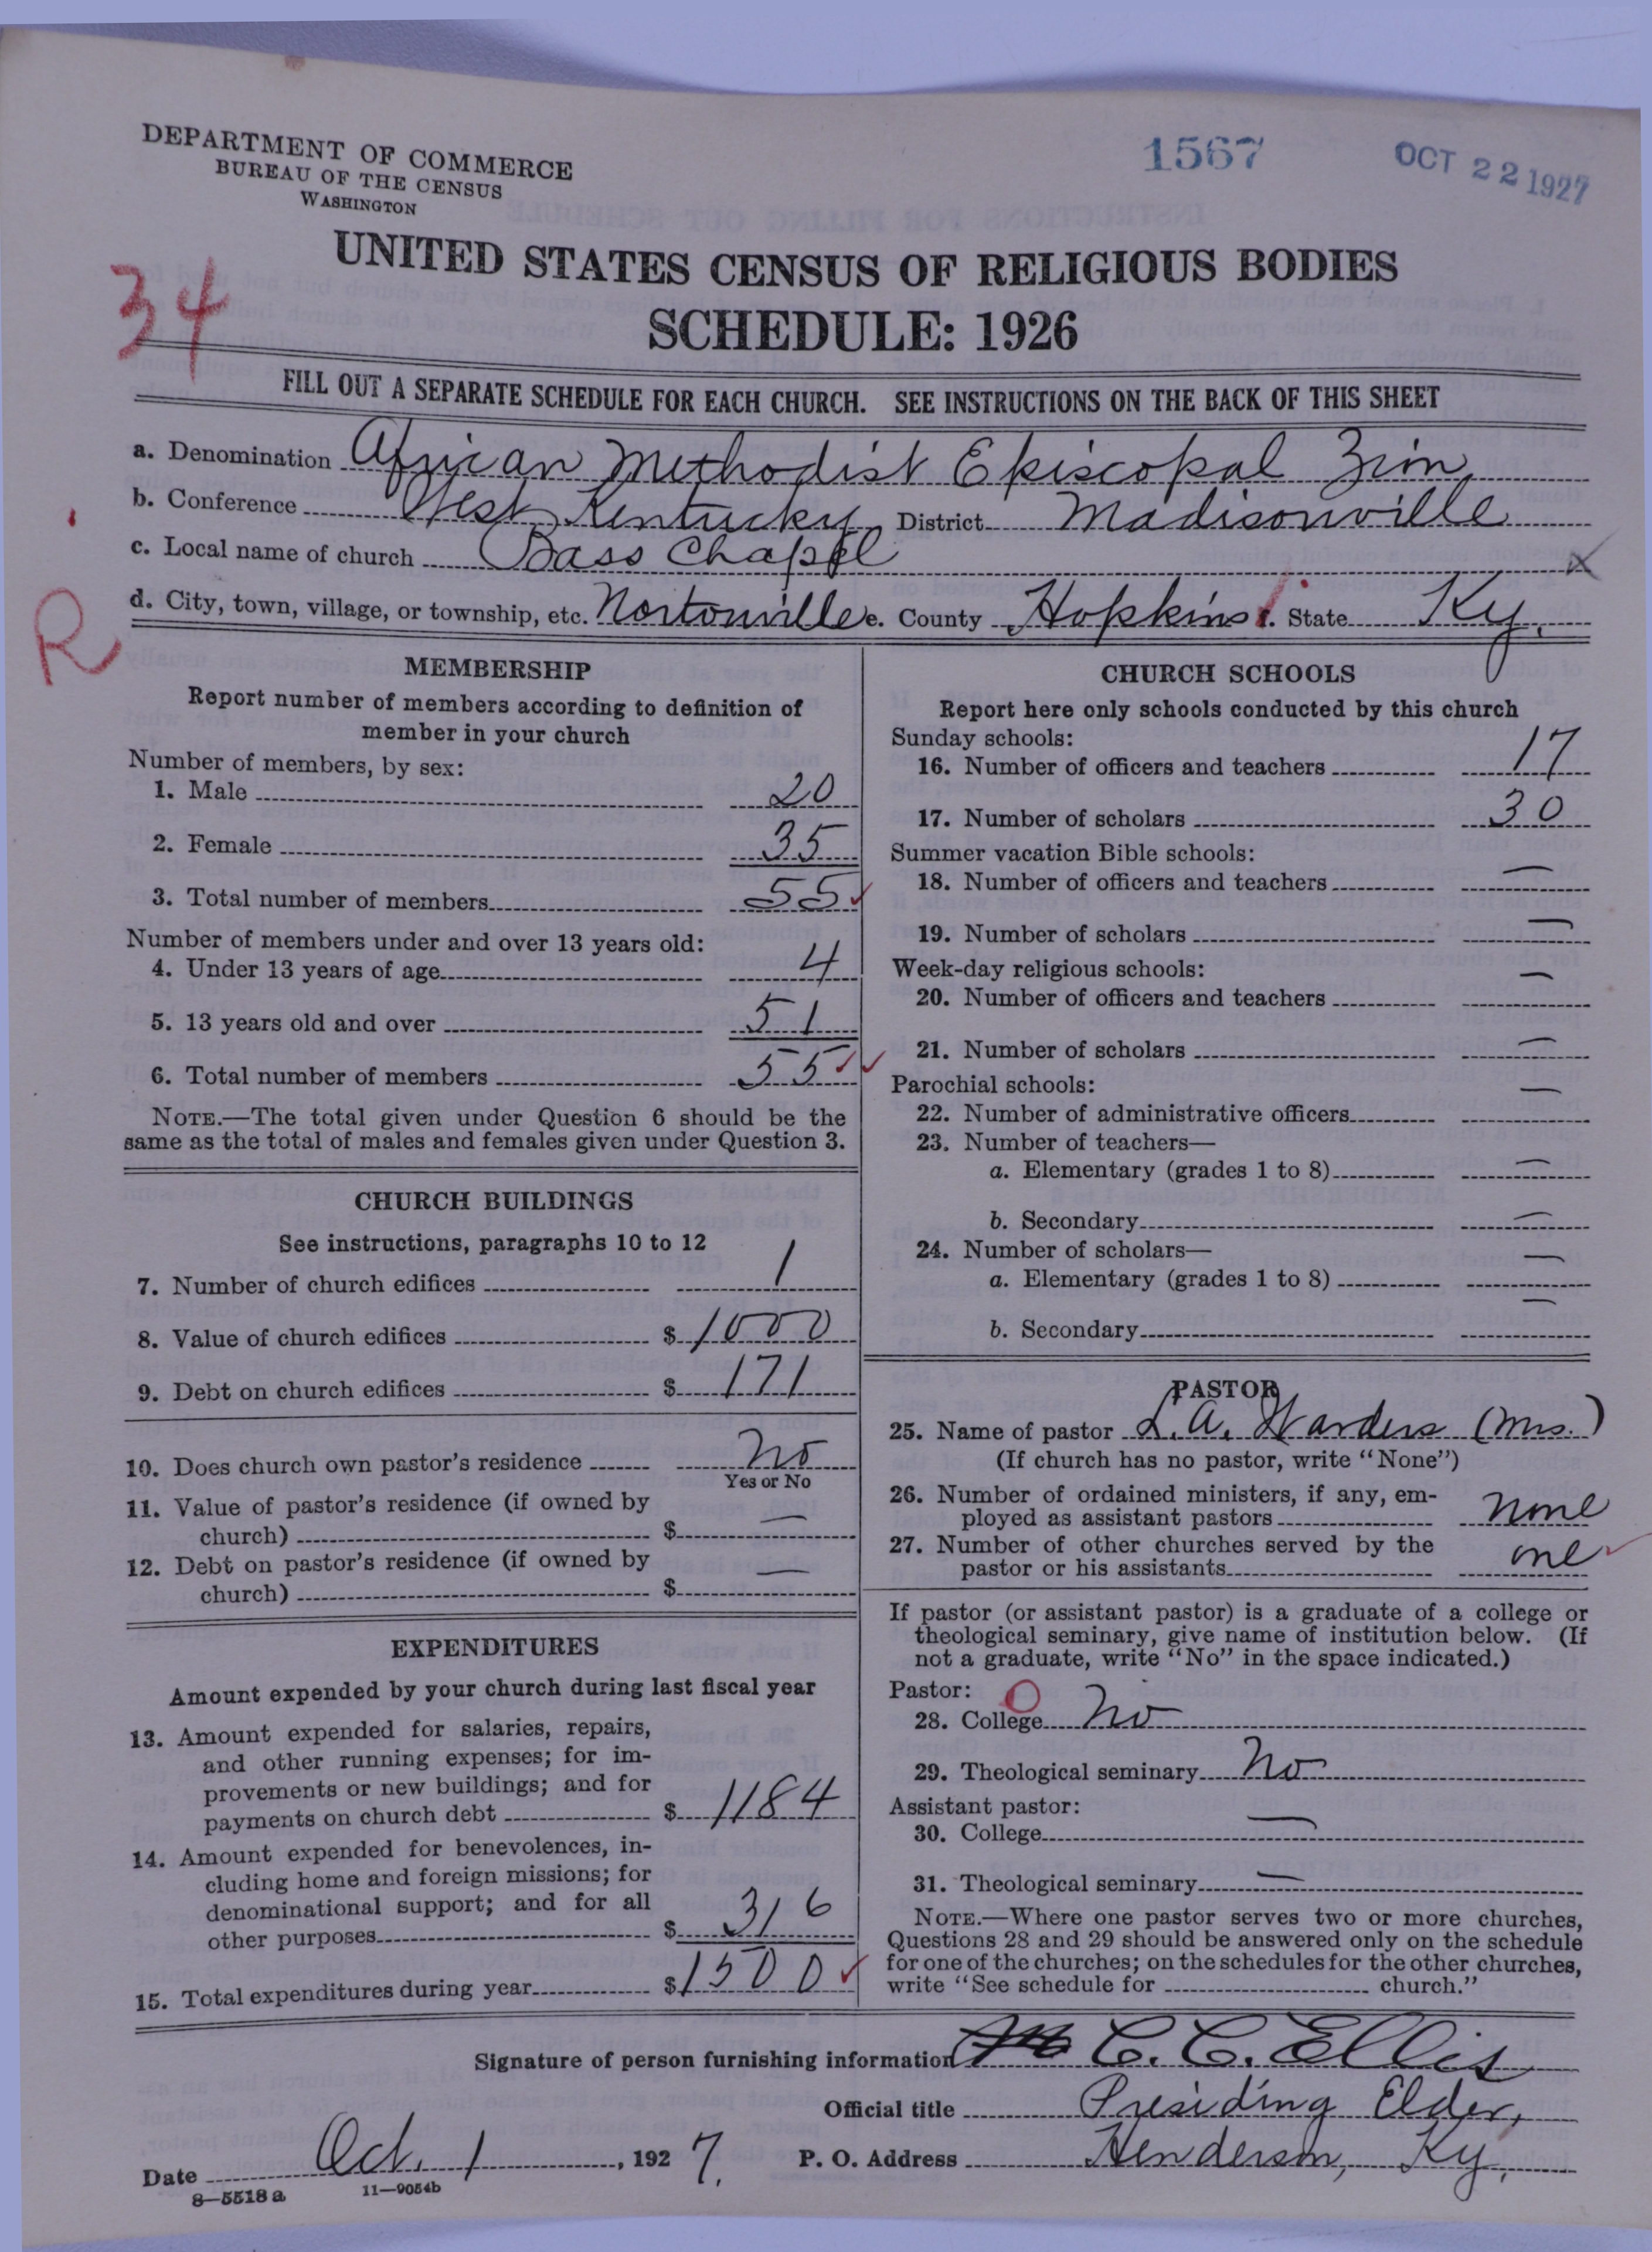 DEPARTMENT OF COMMERCE
BUREAU OF THE CENSUS
WASHINGTON
1567
OCT 22 1927
34
UNITED STATES CENSUS OF RELIGIOUS BODIES
SCHEDULE: 1926
FILL OUT A SEPARATE SCHEDULE FOR EACH CHURCH. SEE INSTRUCTIONS ON THE BACK OF THIS SHEET
a. Denomination African Methodist Episcopal Zion
b. Conference West Kentucky District Madisonville
c. Local name of church Bass Chapel
d. City, town, village, or township, etc. Nortonville e. County Hopkins f. State Ky.
R
MEMBERSHIP
Report number of members according to definition of
member in your church
Number of members, by sex:
1. Male 20
2. Female 35
3. Total number of members 55
Number of members under and over 13 years old:
4. Under 13 years of age 4
5. 13 years old and over 51
6. Total number of members 55
NOTE.—The total given under Question 6 should be the
same as the total of males and females given under Question 3.
CHURCH BUILDINGS
See instructions, paragraphs 10 to 12
7. Number of church edifices 1
8. Value of church edifices $ 1000
9. Debt on church edifices $ 171
10. Does church own pastor's residence No
Yes or No
11. Value of pastor's residence (if owned by
church) $ —
12. Debt on pastor's residence (if owned by
church) $ —
EXPENDITURES
Amount expended by your church during last fiscal year
13. Amount expended for salaries, repairs,
and other running expenses; for im-
provements or new buildings; and for
payments on church debt $ 1184
14. Amount expended for benevolences, in-
cluding home and foreign missions; for
denominational support; and for all
other purposes $ 316
15. Total expenditures during year $ 1500
CHURCH SCHOOLS
Report here only schools conducted by this church
Sunday schools:
16. Number of officers and teachers 17
17. Number of scholars 30
Summer vacation Bible schools:
18. Number of officers and teachers —
19. Number of scholars —
Week-day religious schools:
20. Number of officers and teachers —
21. Number of scholars —
Parochial schools:
22. Number of administrative officers —
23. Number of teachers—
a. Elementary (grades 1 to 8) —
b. Secondary —
24. Number of scholars—
a. Elementary (grades 1 to 8) —
b. Secondary —
PASTOR
25. Name of pastor L. A. Warders (Mrs.)
(If church has no pastor, write "None")
26. Number of ordained ministers, if any, em-
ployed as assistant pastors none
27. Number of other churches served by the
pastor or his assistants one
If pastor (or assistant pastor) is a graduate of a college or
theological seminary, give name of institution below. (If
not a graduate, write "No" in the space indicated.)
Pastor: 0
28. College No
29. Theological seminary No
Assistant pastor:
30. College —
31. Theological seminary —
NOTE.—Where one pastor serves two or more churches,
Questions 28 and 29 should be answered only on the schedule
for one of the churches; on the schedules for the other churches,
write "See schedule for church."
Signature of person furnishing information C. C. Ellis
Official title Presiding Elder,
Date Oct. 1, 1927. P. O. Address Henderson, Ky.
8—5518a 11—9054b